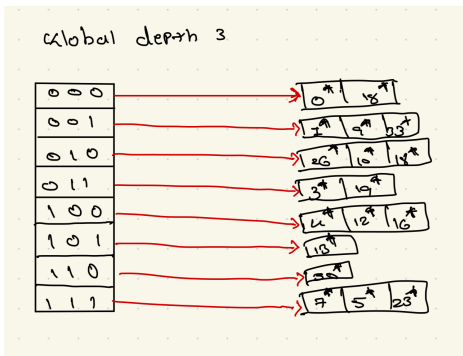 Global depth 3
0 0 0 0* 18*
0 0 1 1* 9* 33*
0 1 0 26* 10* 18*
0 1 1 3* 19*
1 0 0 4* 12* 16*
1 0 1 13*
1 1 0
1 1 1 7* 5* 23*